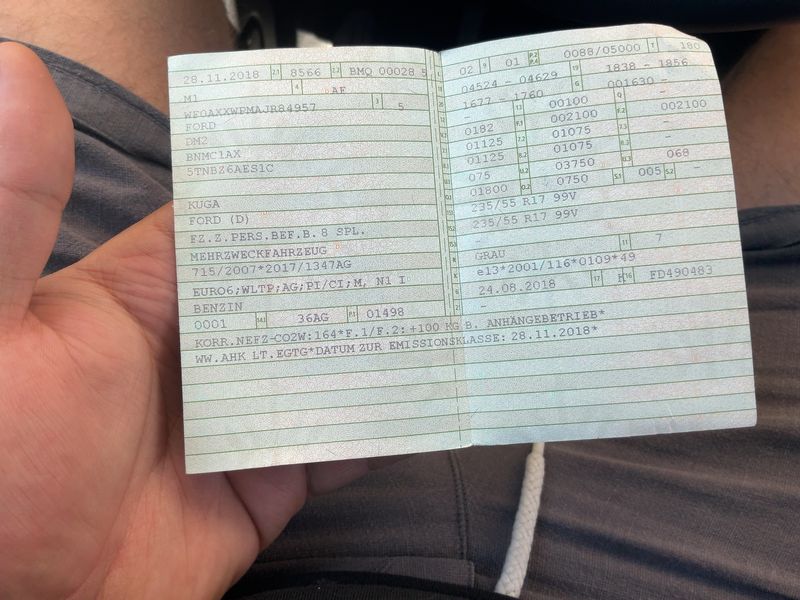 28.11.2018 2.1 8566 2.2 BMQ 00028 5
M1 4 AF
WF0AXXWPMAJR84957 3 5
FORD
DM2
BNMC1AX
5TNBZ6AES1C
KUGA
FORD (D)
FZ.Z.PERS.BEF.B. 8 SPL.
MEHRZWECKFAHRZEUG
715/2007*2017/1347AG
EURO6;WLTP;AG;PI/CI;M, N1 I
BENZIN
0001 14.1 36AG P.1 01498
L 02 9 01 P.2 P.4 0088/05000 T -180
04524 - 04629 19 1838 - 1856
1677 - 1760 G 001630 -
- 13 00100 Q -
0182 F.1 002100 F.2 002100
01125 7.2 01075 7.3 -
01125 8.2 01075 8.3 -
075 U.2 03750 U.3 068
01800 O.2 0750 S.1 005 S.2 -
235/55 R17 99V
235/55 R17 99V
-
GRAU 11 7
e13*2001/116*0109*49
24.08.2018 17 16 FD490483
-
KORR.NEFZ-CO2W:164*F.1/F.2: +100 KG B. ANHÄNGEBETRIEB*
WW.AHK LT.EGTG*DATUM ZUR EMISSIONSKLASSE: 28.11.2018*